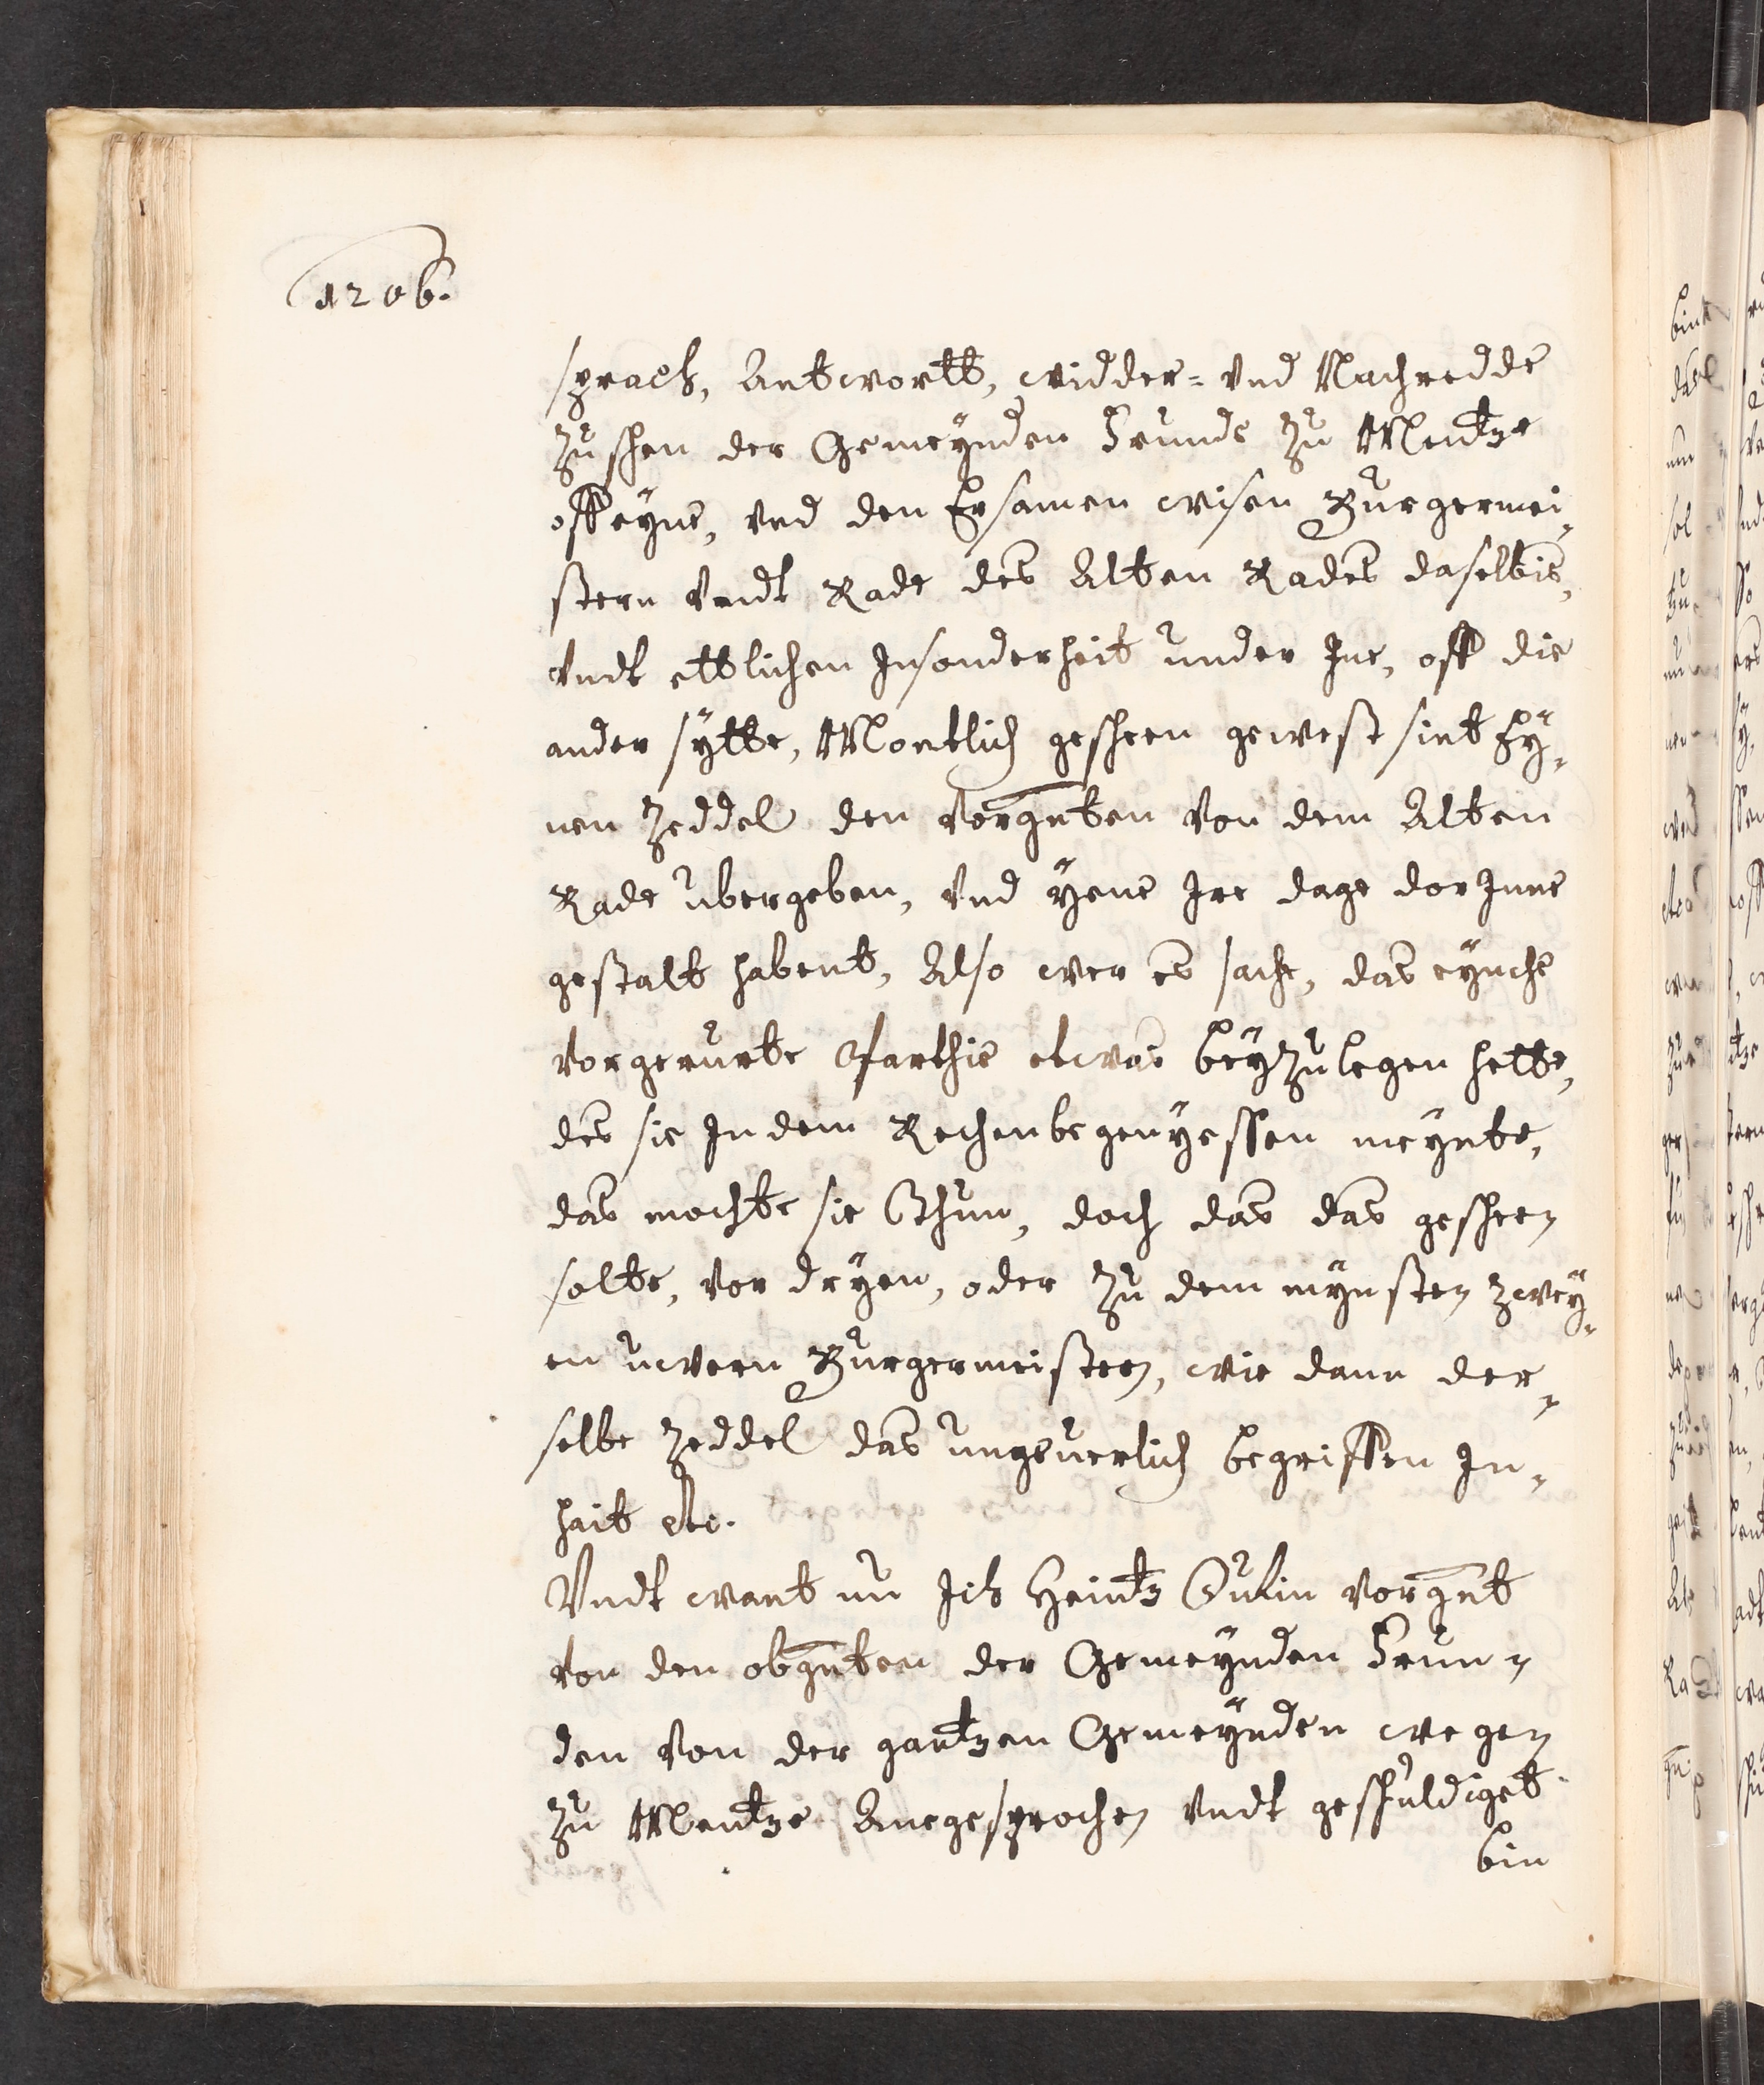 1206.
sprach, Antwortt, widder- vnd Nachredde
zuschen der Gemeynden Frunde zu Mentze
off eyne, vnd den Ersamen wisen Burgermei-
stern vndt Rade des Alten Rades daselbis,
vndt ettlichen Insonderheit under Ine, off die
ander sytte, Montlich gescheen gewest sint Ey-
nen Zeddel den vorgnten von dem Alten
Rade ubergeben, vnd yene Ire dage dor Inne
gestalt habent, Also wer es sache, das eynche
vorgerurte Parthie etwas bey zu legen hette,
des sie In dem Rechen begenyessen meynte,
das mochte sie Thun, doch das das gescheen
solte, vor dryen, oder zu dem mynsten zwey-
en uwern Burgermeistern, wie dann der-
selbe Zeddel das ungeuerlich begriffen In-
hait etc.
Vndt want nu Ich Heintz vorgnt
von den obgnten der Gemeynden Frun-
den von der gantzen Gemeynden wegen
zu Mentze Anegesprochen vndt geschuldiget
bin